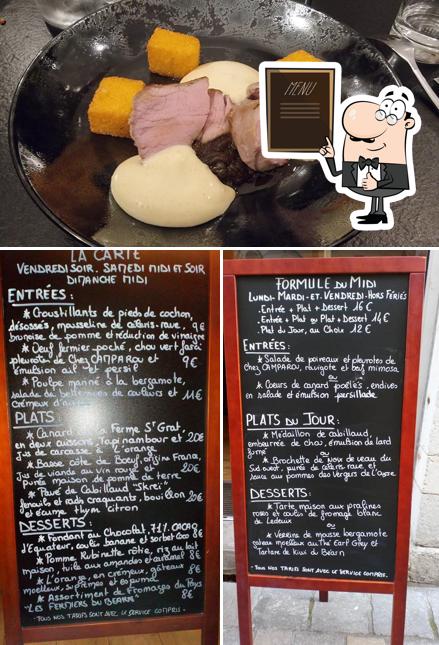 MENU
LA CARTE
VENDREDI SOIR. SAMEDI MIDI ET SOIR
DIMANCHE MIDI
ENTRÉES:
* Croustillants de pieds de cochon,
désossés, mousseline de céleris-rave, 9€
brunoise de pomme et réduction de vinaigre
* Oeuf fermier poché, chou vert farci
pleurotes de chez CAMPAROU et 9€
émulsion ail et persil
* Poulpe mariné à la bergamote,
salade de betteraves de couleurs et 11€
crémeux d'
PLATS:
* Canard de la Ferme St Grat,
en deux cuissons, Topinambour et 20€
jus de carcasse à l'orange
* Basse côte de Boeuf origine France,
jus de viande au vin rouge et 20€
purée maison de pomme de terre
* Pavé de Cabillaud "Skreï"
fenouil et radis croquants, bouillon 20€
et écume thym citron
DESSERTS:
* Fondant au Chocolat 71% CACAO
d'équateur, coulis banane et sorbet coco 8€
* Pomme Rubinette rôtie, riz au lait
maison, tuile aux amandes et caramel 8€
* L'orange, en crémeux, gâteaux
moelleux, suprêmes et espuma 8€
* Assortiment de fromages du Pays 8€
"LES FERMIERS DU BÉARN"
- TOUS NOS TARIFS SONT AVEC LE SERVICE COMPRIS -
FORMULE DU MIDI
LUNDI - MARDI - ET - VENDREDI - HORS FÉRIÉS
. Entrée + Plat + Dessert 16 €
. Entrée + Plat ou Plat + Dessert 14€
. Plat du Jour, au Choix 12 €
ENTRÉES:
* Salade de poireaux et pleurotes de
chez CAMPAROU, ravigote et oeuf mimosa
ou
* Coeurs de canard poêlés, endives
en salade et émulsion persillade
PLATS DU JOUR:
* Médaillon de cabillaud,
embeurrée de chou, émulsion de lard
fumé
ou
* Brochette de Noix de veau du
Sud ouest, purée de céleris rave et
sauce aux pommes des Vergers de l'Agora
DESSERTS:
* Tarte maison aux pralines
roses et coulis de fromage blanc
de Ledeuix
ou
* Verrine de mousse bergamote
gâteau moelleux au Thé Earl Grey et
Tartare de kiwi du Béarn
- TOUS NOS TARIFS SONT AVEC LE SERVICE COMPRIS -